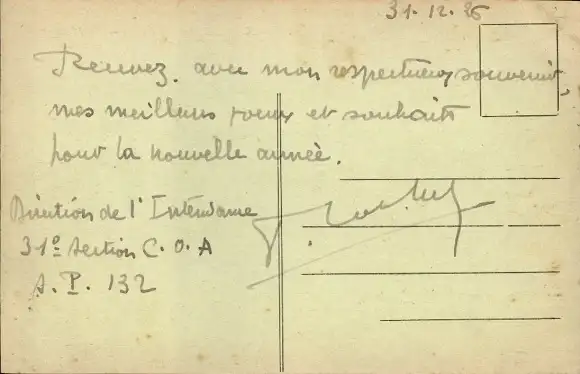 31.12.26
Recevez, avec mon respectueux souvenir,
mes meilleurs voeux et souhaits
pour la nouvelle année.
Direction de l'Intendance
31e Section C.O.A
S.P. 132